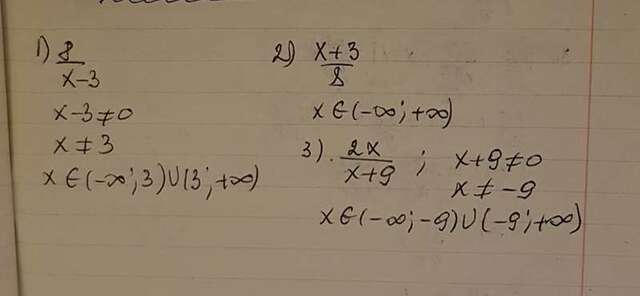 1) 8/(x-3)
x-3≠0
x≠3
x∈(-∞;3)∪(3;+∞)
2) (x+3)/8
x∈(-∞;+∞)
3). 2x/(x+9) ; x+9≠0
x≠-9
x∈(-∞;-9)∪(-9;+∞)